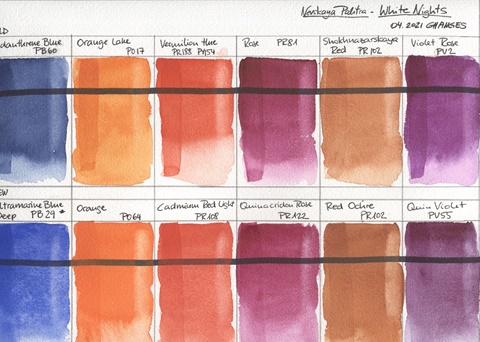 Nevskaya Palitra - White Nights
04.2021 CHANGES
LD
danthrene Blue
PB60
Orange Lake
PO17
Vermilion Hue
PR188 PY154
Rose PR81
Shakhnazarskaya
Red PR102
Violet Rose
PV2
EW
ltramarine Blue
Deep PB29 *
Orange
PO64
Cadmium Red Light
PR108
Quinacridone Rose
PR122
Red Ochre
PR102
Quin Violet
PV55